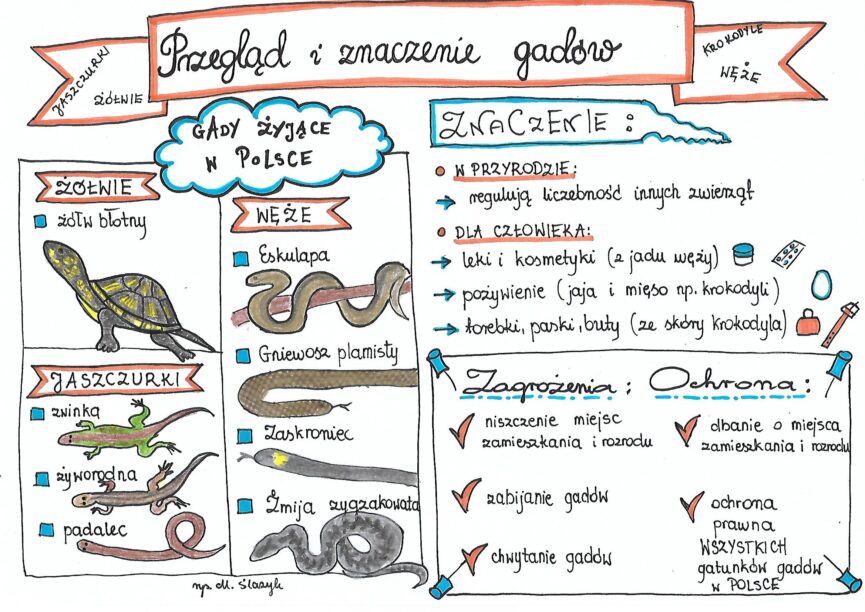 Przegląd i znaczenie gadów
JASZCZURKI
ŻÓŁWIE
KROKODYLE
WĘŻE
GADY ŻYJĄCE
W POLSCE
ŻÓŁWIE
żółw błotny
JASZCZURKI
zwinka
żyworodna
padalec
WĘŻE
Eskulapa
Gniewosz plamisty
Zaskroniec
Żmija zygzakowata
rys. M. Ślazyk
ZNACZENIE:
W PRZYRODZIE:
regulują liczebność innych zwierząt
DLA CZŁOWIEKA:
leki i kosmetyki (z jadu węży)
pożywienie (jaja i mięso np. krokodyli)
torebki, paski, buty (ze skóry krokodyla)
Zagrożenia:
niszczenie miejsc
zamieszkania i rozrodu
zabijanie gadów
chwytanie gadów
Ochrona:
dbanie o miejsca
zamieszkania i rozrodu
ochrona
prawna
WSZYSTKICH
gatunków gadów
w POLSCE